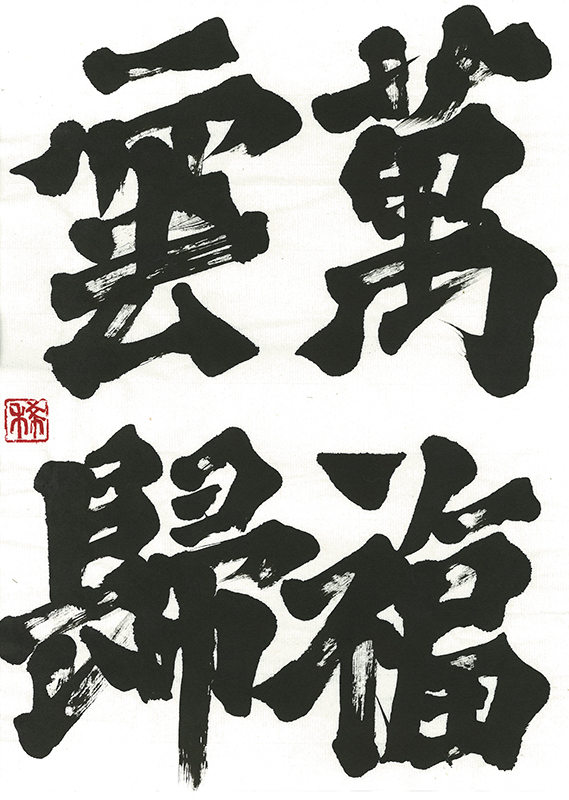 萬福
雲歸
稀